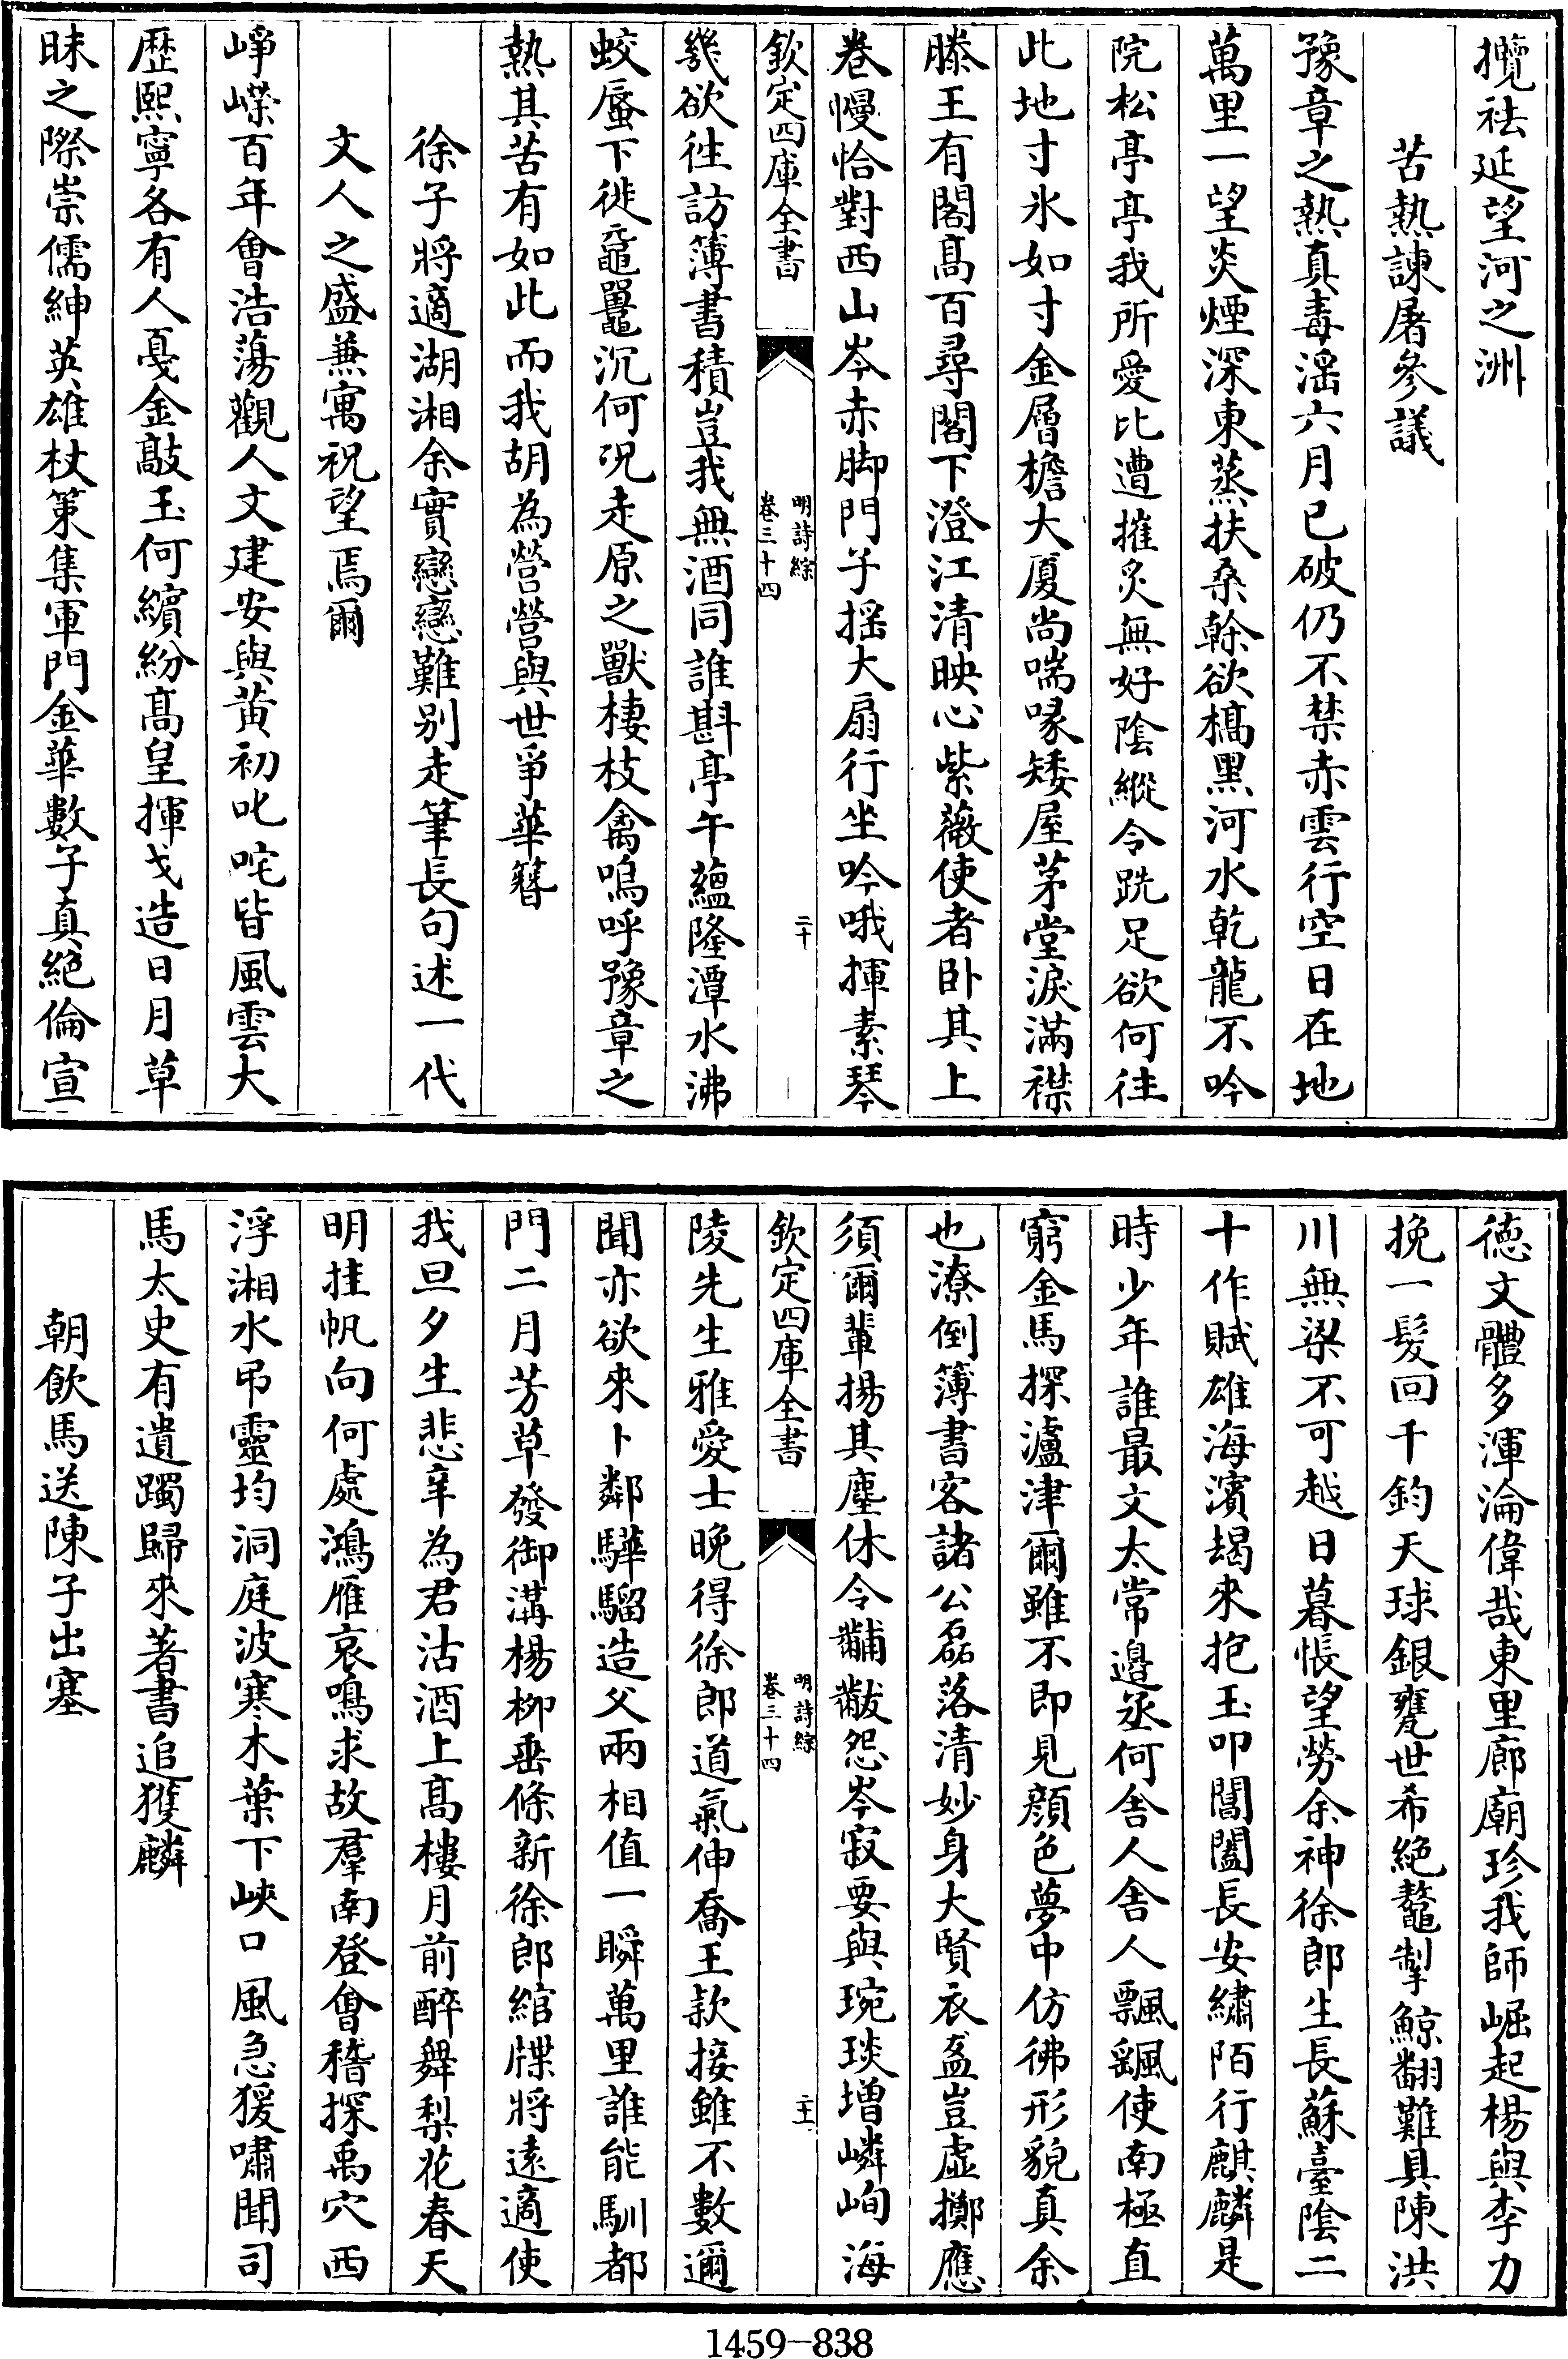 攬祛延望河之洲
苦熱諫屠參議
豫章之熱真毒滛六月已破仍不禁赤雲行空日在地
萬里一望炎煙深東蒸扶桑榦欲槁黑河水乾龍不吟
院松亭亭我所愛比遭摧炙無好陰縱令跣足欲何往
此地寸氷如寸金層檐大厦尚喘喙矮屋茅堂淚滿襟
滕王有閣髙百尋閣下澄江清映心紫薇使者卧其上
卷幔恰對西山岑赤脚門子揺大扇行坐吟哦揮素琴
欽定四庫全書
明詩綜
卷三十四
二十
幾欲徃訪簿書積豈我無酒同誰斟亭午蘊隆潭水沸
蛟蜃下徙黿鼉沉何況走原之獸棲枝禽嗚呼豫章之
熱其苦有如此而我胡為營營與世爭華簪
徐子將適湖湘余實戀戀難别走筆長句述一代
文人之盛兼寓祝望焉爾
崢嶸百年會浩蕩觀人文建安與黄初叱咤皆風雲大
歴熙寧各有人戞金敲玉何繽紛髙皇揮戈造日月草
昧之際崇儒紳英雄杖策集軍門金華數子真絶倫宣
德文體多渾淪偉哉東里廊廟珍我師崛起楊與李力
挽一髮回千鈞天球銀甕世希絶鼇掣鯨翻難具陳洪
川無梁不可越日暮悵望勞余神徐郎生長蘇臺陰二
十作賦雄海濱朅來抱玉叩閶闔長安繡陌行麒麟是
時少年誰最文太常邉丞何舎人舎人飄颻使南極直
窮金馬探瀘津爾雖不即見顔色夢中仿彿形貌真余
也潦倒簿書客諸公磊落清妙身大賢衣盋豈虚擲應
須爾輩揚其塵休令黼黻怨岑寂要與琬琰増嶙峋海
欽定四庫全書
明詩綜
卷三十四
二十一
陵先生雅愛士晩得徐郎道氣伸喬王欵接雖不數邇
聞亦欲來卜鄰驊騮造父兩相值一瞬萬里誰能馴都
門二月芳草發御溝楊柳垂條新徐郎綰牒將逺適使
我旦夕生悲辛為君沽酒上髙樓月前醉舞梨花春天
明挂帆向何處鴻雁哀鳴求故羣南登會稽探禹穴西
浮湘水弔靈均洞庭波寒木葉下峽口風急猨嘯聞司
馬太史有遺躅歸來著書追獲麟
朝飲馬送陳子出塞
1459-838